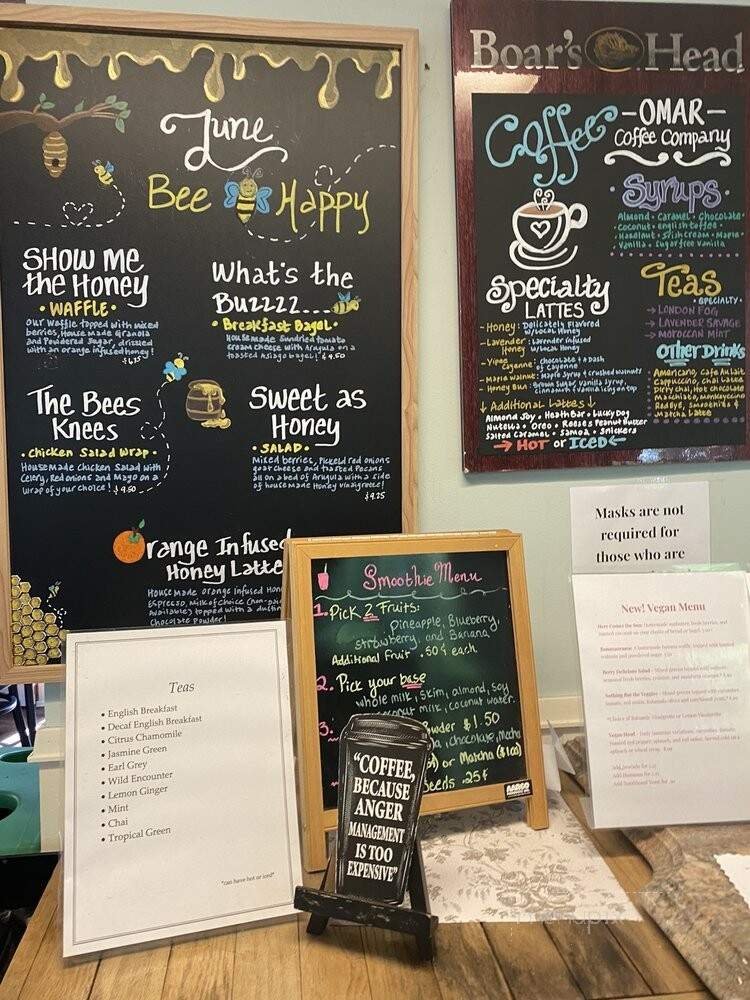 June
Bee Happy
SHOW ME
the Honey
• WAFFLE •
Our waffle topped with mixed
berries, House made Granola
and Powdered Sugar, drizzled
with an orange infused honey!
What's the
Buzzzz...
• Breakfast Bagel •
House made Sundried tomato
cream cheese with Arugula on a
toasted Asiago bagel! $4.50
The Bees
Knees
• chicken Salad Wrap •
House made Chicken Salad with
Celery, Red onions and Mayo on a
wrap of your choice! $9.50
Sweet as
Honey
• SALAD •
Mixed berries, Pickled red onions
goat cheese and toasted Pecans
all on a bed of Arugula with a side
of house made Honey vinaigrette!
$9.25
Orange Infused
Honey Latte
House made orange infused Hon
Espresso, milk of choice
Available) topped with a dustin
chocolate powder!
Boar's Head
Coffee
-OMAR-
Coffee Company
• Syrups •
Almond • Caramel • Chocolate
Coconut • english toffee •
Hazelnut • Irish cream • Maple
Vanilla • Sugar free vanilla
Specialty
LATTES
• Honey: Delicately flavored
w/Local Honey
• Lavender Honey: Lavender infused
w/Local Honey
• Yipee Cayenne: chocolate + a dash
of cayenne
• Maple Walnut: Maple Syrup + crushed walnuts
• Honey Bun: Brown Sugar, Vanilla Syrup,
cinnamon + vanilla icing on top
↓ Additional Lattes ↓
Almond Joy • Heath Bar • Lucky Dog
Nutella • Oreo • Reese's Peanut Butter
Salted Caramel • Samoa • Snickers
→ HOT or ICED ←
Teas
• SPECIALTY •
→ LONDON FOG
→ LAVENDER SAVAGE
→ MOROCCAN MINT
Other Drinks
Americano, Cafe Au Lait
Cappuccino, Chai Latte
Dirty Chai, Hot chocolate
Macchiato, Monkeyccino
Red Eye, Smoothies +
Matcha Latte
Masks are not
required for
those who are
Smoothie Menu
1. Pick 2 Fruits:
Pineapple, Blueberry,
strawberry, and Banana
Additional fruit .50¢ each
2. Pick your base
whole milk, skim, almond, soy
coconut milk, coconut water.
3.
Powder $1.50
chocolate, mocha
or Matcha ($1.00)
Seeds .25¢
AARCO
Teas
• English Breakfast
• Decaf English Breakfast
• Citrus Chamomile
• Jasmine Green
• Earl Grey
• Wild Encounter
• Lemon Ginger
• Mint
• Chai
• Tropical Green
*can have hot or iced*
"COFFEE,
BECAUSE
ANGER
MANAGEMENT
IS TOO
EXPENSIVE"
New! Vegan Menu